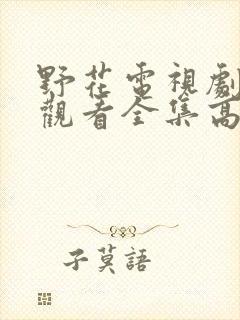 野花電視劇
觀看全集高
子莫語